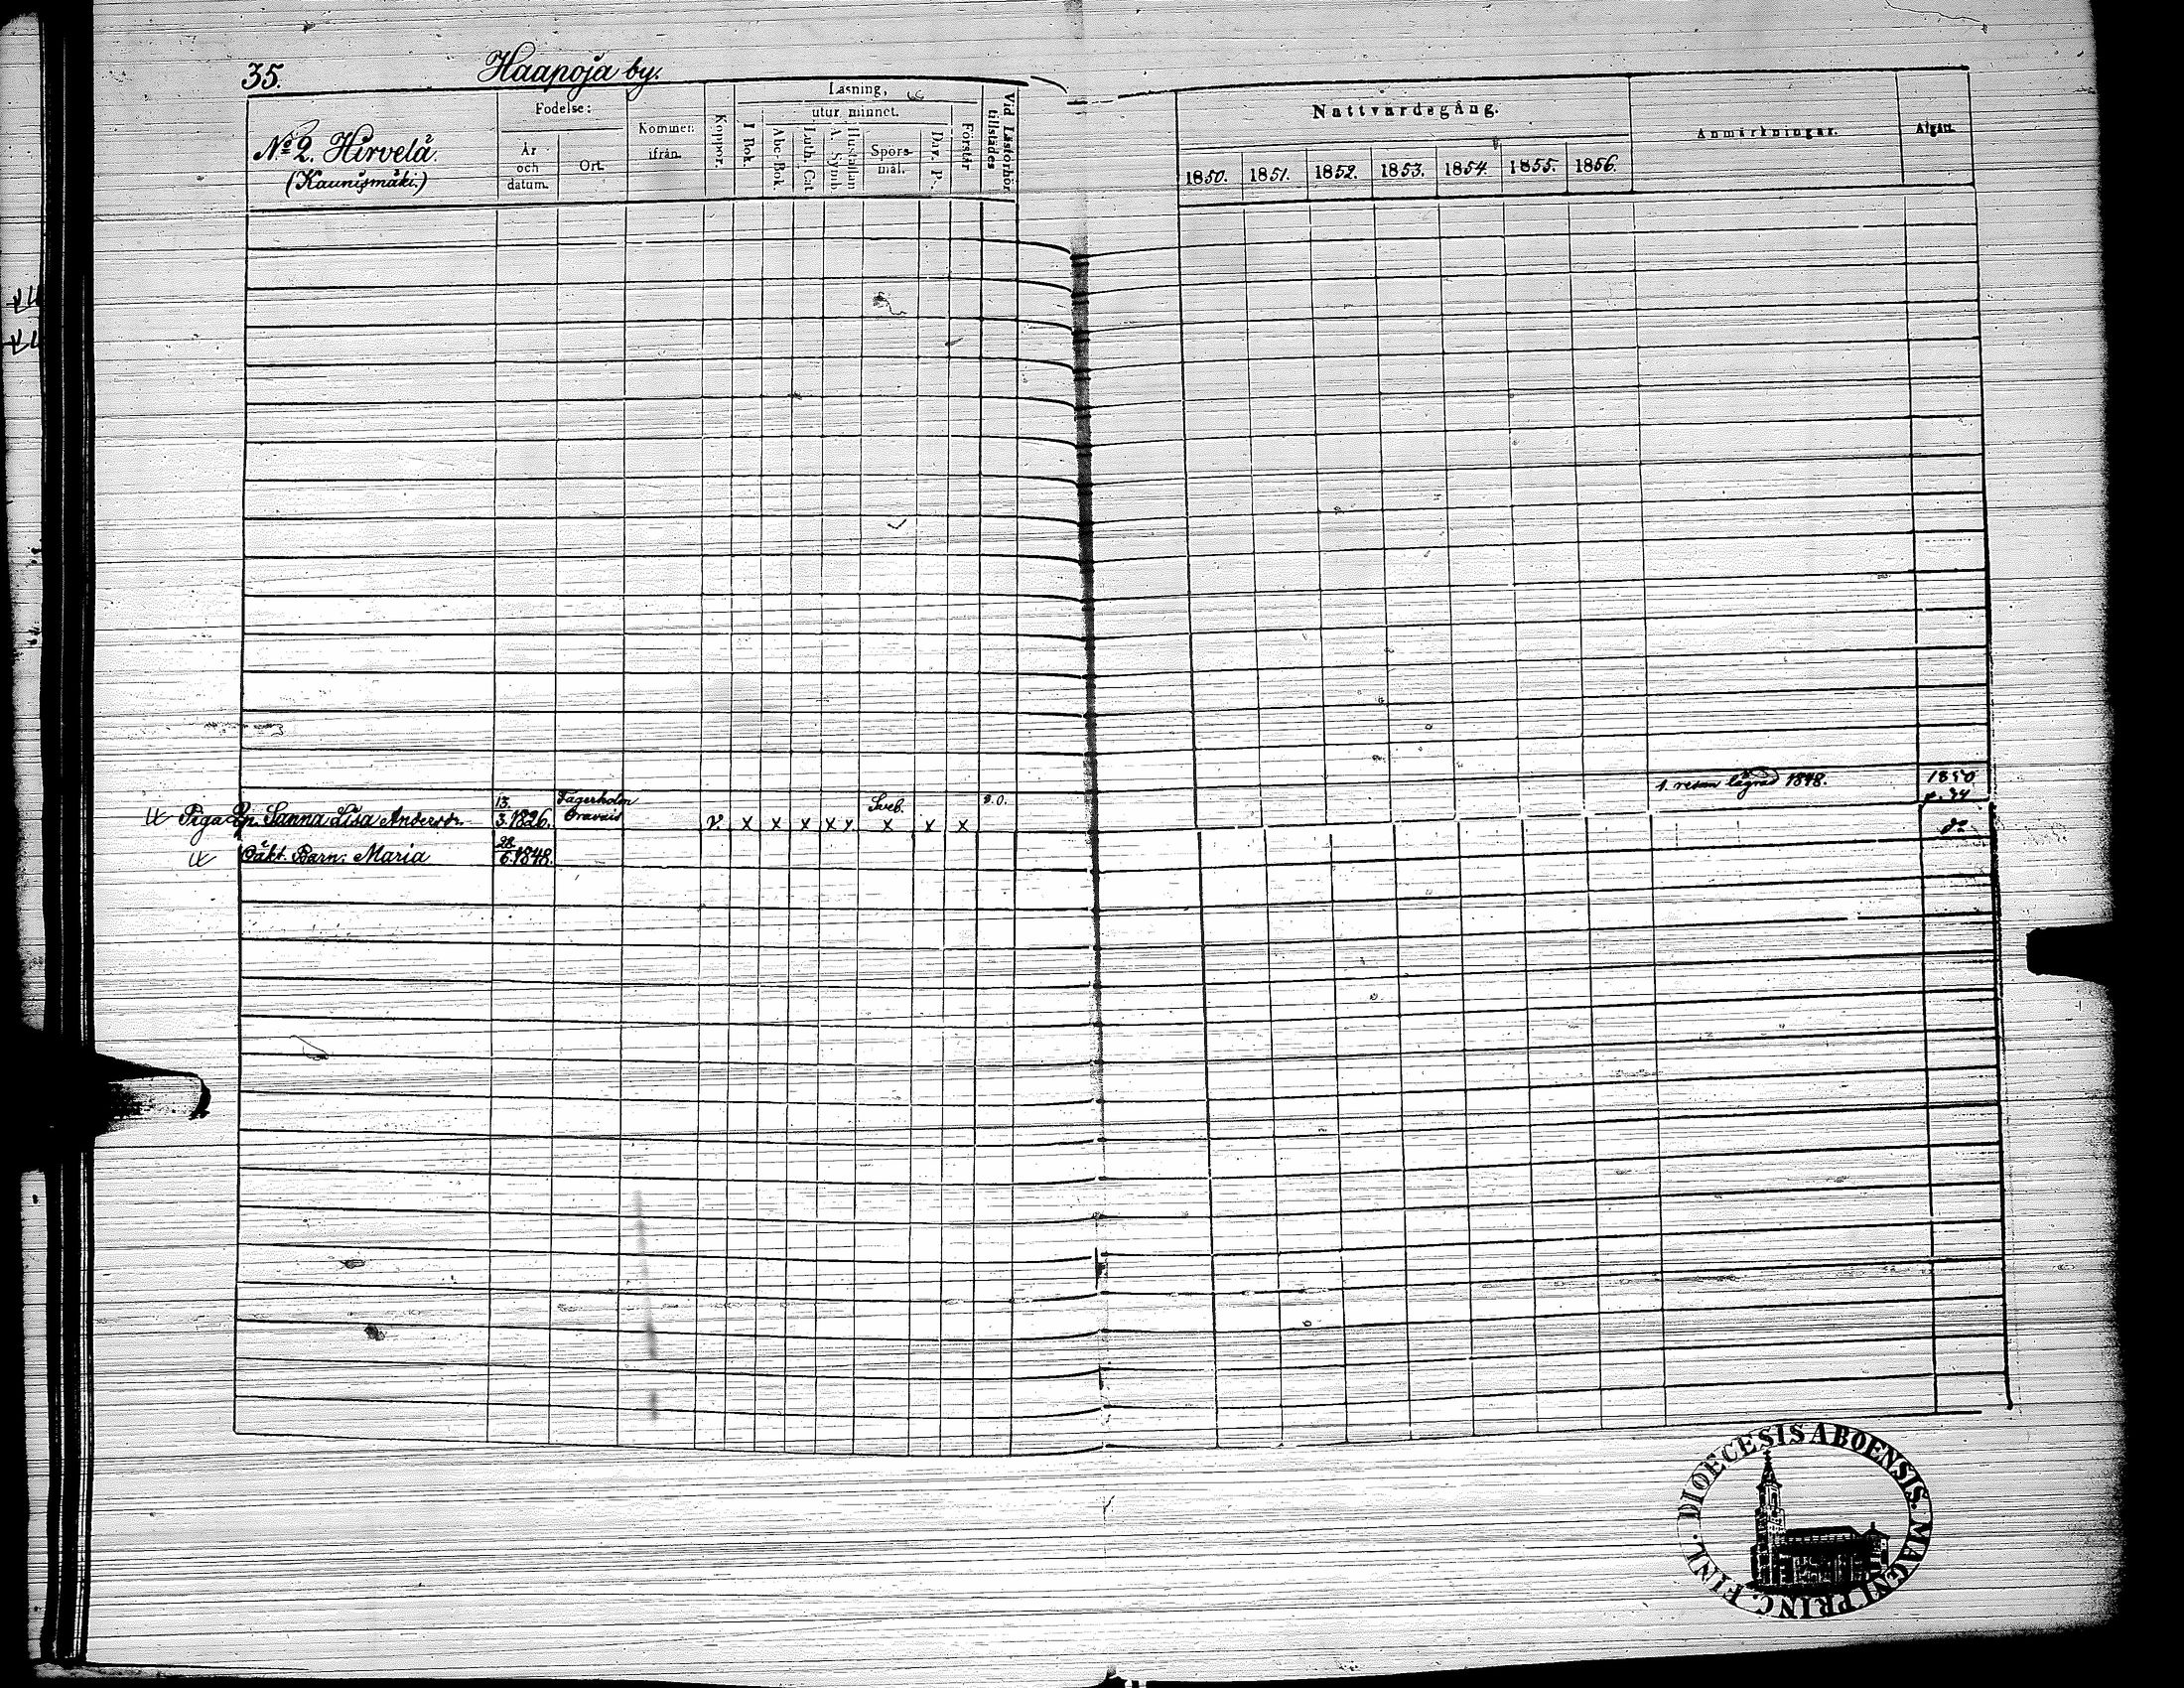 35.
Haapoja by.
Nº 2. Hirvelä.
(Kaunismäki.)
Födelse:
År och datum.
Ort.
Kommer ifrån.
Koppor.
Läsning,
utur minnet.
I Bok.
Abc-Bok.
Luth. Cat.
A. Symb.
Hustaflan
Spörs-mål.
Dav. P.
Förstår
Vid Läsförhör tillstädes
Nattvardsgång.
1850. 1851. 1852. 1853. 1854. 1855. 1856.
Anmärkningar.
Afgått.
Piga Sanna Lisa Andersdr.
13.
3. 1826.
Fagerholm
Oravais
v. x x x x x x x x
Sveb.
1. resan lägrad 1848.
1850
p. 34
Oäkt. Barn: Maria
28
6. 1848.
dº
FINL. DIOECESIS ABOENSIS. MAGNI PRINC.